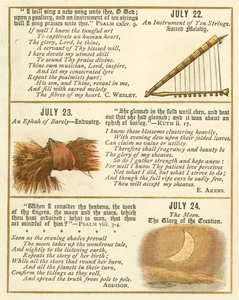 "I will sing a new song unto thee, O God;
upon a psaltery, and an instrument of ten strings
will I sing praises unto thee." PSALM cxliv. 9.
If well I know the tuneful art
To captivate an human heart,
The glory, Lord, be thine,
A servant of Thy blessed will,
I here devote my utmost skill
To sound Thy praise divine.
Thine own musician, Lord, inspire,
And let my consecrated lyre
Repeat the psalmist's part;
His son, and Thine, reveal in me,
And fill with sacred melody
The fibres of my heart. C. WESLEY.
JULY 22.
An Instrument of Ten Strings.
Sacred Melody.
JULY 23.
An Ephah of Barley—Industry.
"She gleaned in the field until even, and beat
out that she had gleaned; and it was about an
ephah of barley."—RUTH ii. 17.
I know these blossoms clustering heavily,
With evening dew upon their folded leaves,
Can claim no value or utility,
Therefore shall fragrancy and beauty be
The glory of my sheaves.
So do I gather strength and hope anew;
For well I know Thy patient love perceives
Not what I did, but what I strove to do;
And though the full ripe ears be sadly few,
Thou wilt accept my sheaves.
E. AKERS.
"When I consider thy heavens, the work
of thy fingers, the moon and the stars, which
thou hast ordained; what is man, that thou
art mindful of him?"—PSALM viii. 3-4.
Soon as the evening shades prevail
The moon takes up the wondrous tale,
And nightly to the listening earth,
Repeats the story of her birth;
While all the stars that round her burn,
And all the planets in their turn,
Confirm the tidings as they roll,
And spread the truth from pole to pole.
ADDISON.
JULY 24.
The Moon.
The Glory of the Creation.